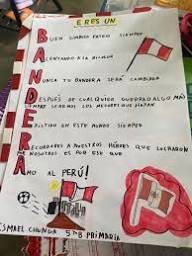 ERES UN
BUEN SÍMBOLO PATRIO SIEMPRE
ALENTANDO A LA
NUNCA TU BANDERA SERÁ CAMBIADA
DESPUÉS DE CUALQUIER GUERRA O ALGO MÁS
SIEMPRE LOS
EN ESTE MUNDO SIEMPRE
RECORDARÉ A NUESTROS HÉROES QUE LUCHARON
NOSOTROS ES POR ESO QUE
AMO AL PERÚ!
ISMAEL CHUNGA 5ºB PRIMARIA